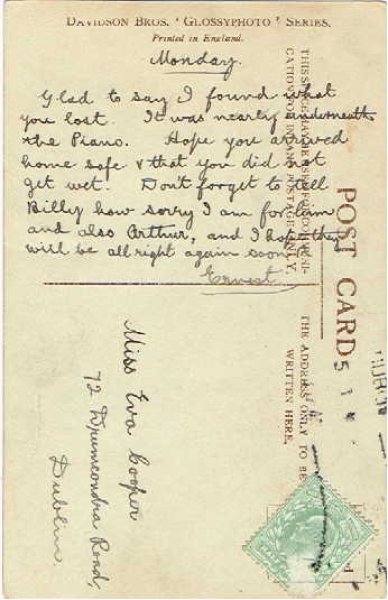 DAVIDSON BROS. ' GLOSSYPHOTO ' SERIES.
Printed in England.
Monday.
Glad to say I found what
you lost. It was nearly underneath
the Piano. Hope you arrived
home safe & that you did not
get wet. Don't forget to tell
Billy how sorry I am for him
and also Arthur, and I hope they
will be all right again soon.
Ernest.
POST CARD
THIS SPACE MAY BE USED FOR COMMUNI-
CATION TO INLAND POSTAGE ONLY.
THE ADDRESS ONLY TO BE
WRITTEN HERE.
Miss Eva Cooper
72 Drumcondra Road,
Dublin.